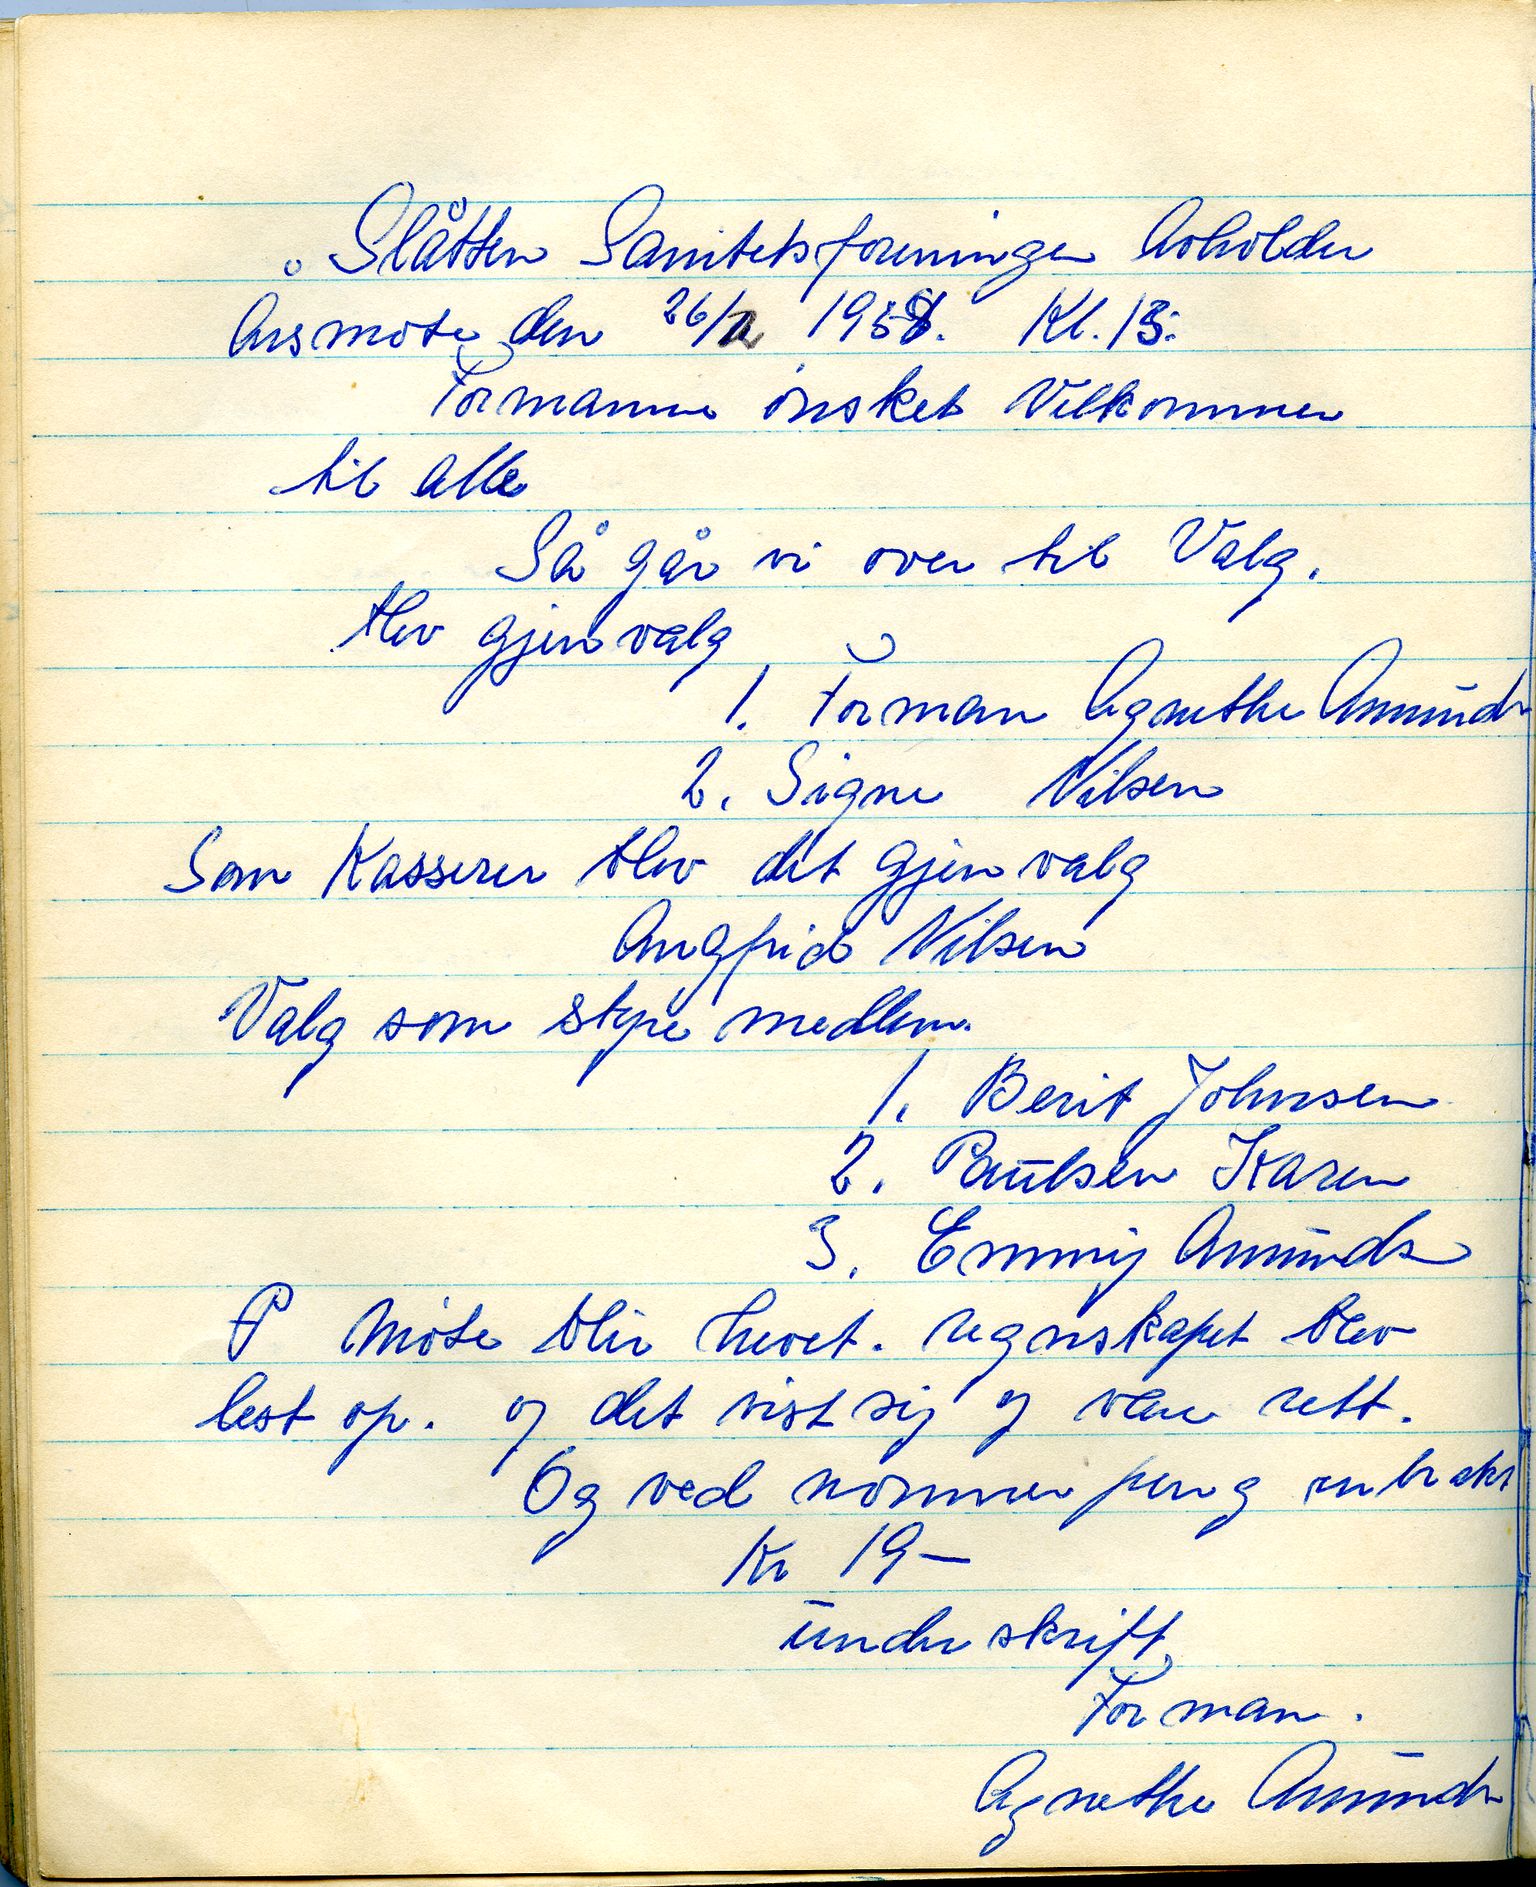 Slåtten Sanitetsforeningen Avholder
Årsmøte den 26/12 1958. Kl. 13.
Formanne ønsket Velkommen
til alle
Så går vi over til Valg.
blev gjenvalg
1. Forman Agnethe Amunds
2. Signe Nilsen
Som Kasserer blev det gjenvalg
Angfrid Nilsen
Valg som styre medlem.
1. Berit Johnsen
2. Paulsen Karen
3. Emmy Amunds
Møte blir hevet. regnskapet blev
lest op. og det vist sig og være rett.
Og ved nommer peng inbrakt
Kr 19–
underskrift
Forman.
Agnethe Amunds